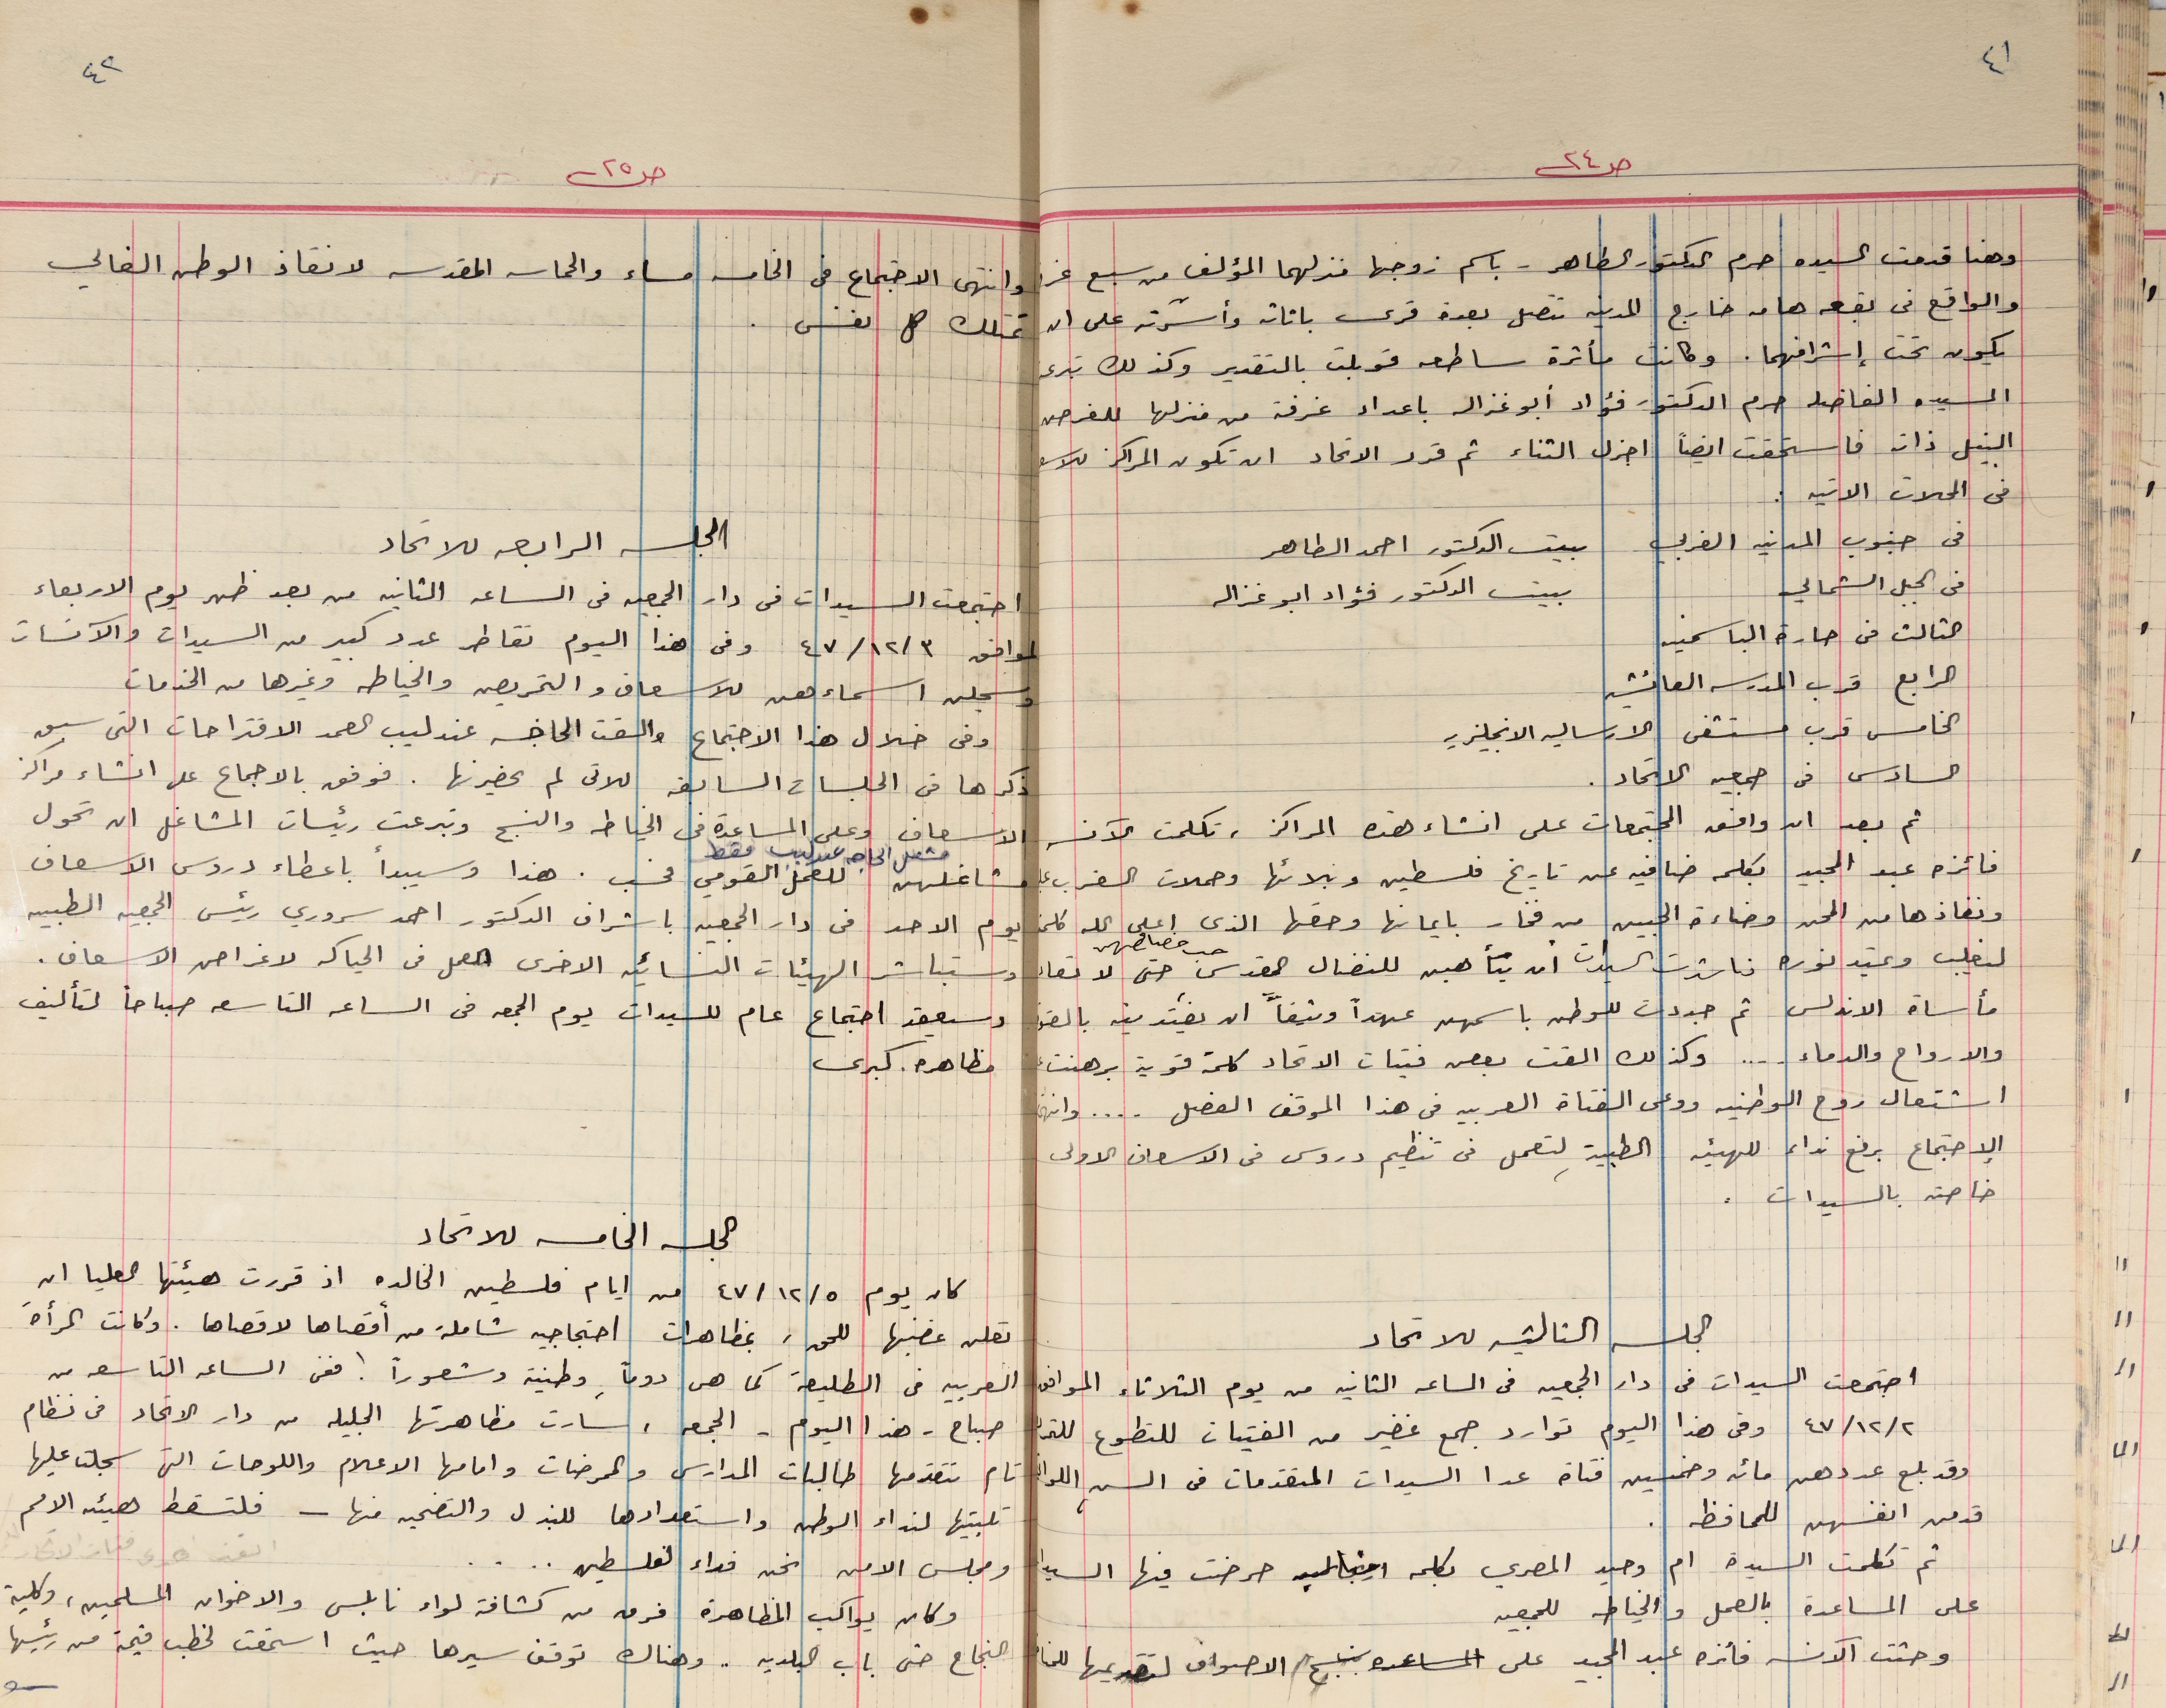 ٤١
ص ٢٤
وهنا قدمت السيده حرم الدكتور الطاهر - باسم زوجها منزلهما المؤلف من سبع غر
والواقع في بقعه هامه خارج المدينه تتصل بعدة قرى باثاثه وأسرته على ان
يكون تحت إشرافهما . وكانت مأثرة ساطعه قوبلت بالتقدير وكذلك تبر
السيده الفاضله حرم الدكتور فؤاد أبو غزاله باعداد غرفة من منزلها للغرض
النبيل ذاته فاستحقت ايضاً اجزل الثناء ثم قرر الاتحاد ان تكون المراكز للاس
في المحلات الاتيه :
في جنوب المدينه الغربي بيت الدكتور احمد الطاهر
في الجبل الشمالي بيت الدكتور فؤاد ابو غزاله
الثالث في حارة الياسمينه
الرابع قرب المدرسه العائشيه
الخامس قرب مستشفى الارساليه الانجليزيه
السادس في جمعيه الاتحاد .
ثم بعد ان وافق المجتمعات على انشاء هذه المراكز ، تكلمت الآنسه
فائزه عبد المجيد بكلمه ضافيه عن تاريخ فلسطين ونبلائها وحملات الغرب
ونفاذها من المحن وضاءة الجبين من فخار بايمانها وحقها الذي اعلى الله كلمت
لتغلب وعتيد نوره ناشدت السيدات ان يتأهبن للنضال المقدس حتى لا تعاد
مأساة الاندلس ثم جددت للوطن باسمهن عهداً وثيقاً ان يفتدينه بالقو
والارواح والدماء .... وكذلك القت بعض فتيات الاتحاد كلمة قوية برهنت
اشتعال روح الوطنيه ووعي الفتاة العربيه في هذا الموقف الفضل .... وانته
الإجتماع برفع نداء للهيئه الطبية لتعمل في تنظيم دروس في الاسعاف الاولى
خاصته بالسيدات .
الجلسه الثالثه للاتحاد
اجتمعت السيدات في دار الجمعيه في الساعه الثانيه من يوم الثلاثاء الموافق
٤٧/١٢/٢ وفي هذا اليوم توارد جمع غفير من الفتيات للتطوع للتم
وقد بلغ عددهن مائه وخمسين فتاة عدا السيدات المتقدمات في السن اللوا
قدمن انفسهن للمحافظه .
ثم تكلمت السيدة ام وحيد المصري بكلمه حرضت فيها السيدا
على المساعدة بالعمل والخياطه للجمعيه
وحثت الآنسه فائزه عبد المجيد على المساعده بنسج الاصواف لتقديمها للمنا
٤٢
ص ٢٥
وانتهى الاجتماع في الخامسه مساء والحماسه المقدسه لانقاذ الوطن الغالي
تمتلك كل نفس .
الجلسه الرابعه للاتحاد
اجتمعت السيدات في دار الجمعيه في الساعه الثانيه من بعد ظهر يوم الاربعاء
الموافق ٤٧/١٢/٣ وفي هذا اليوم تقاطر عدد كبير من السيدات والآنسات
وسجلن اسماءهن للاسعاف والتمريض والخياطه وغيرها من الخدمات
وفي خلال هذا الاجتماع والقت الحاجه عندليب العمد الاقتراحات التي سبق
ذكرها في الجلسات السابقه للاتي لم يحضرنها . فوفق بالاجماع على انشاء مراكز
الاسعاف وعلى المساعدة في الخياطه والنسج وتبرعت رئيسات المشاغل ان تحول
مشغل الحاجه عندليب فقط
مشاغلهن للعمل القومي فحسب . هذا وسيبدأ باعطاء دروس الاسعاف
يوم الاحد في دار الجمعيه باشراف الدكتور احمد سروري رئيس الجمعيه الطبيه
وستباشر الهيئات النسائيه الاخرى العمل في الحياكه لاغراض الاسعاف .
وسيعقد اجتماع عام للسيدات يوم الجمعه في الساعه التاسعه صباحاً لتأليف
مظاهره كبرى
الجلسه الخامسه للاتحاد
كان يوم ٤٧/١٢/٥ من ايام فلسطين الخالده اذ قررت هيئتها العليا ان
تعلن غضبها للحق ، بمظاهرات احتجاجيه شاملة من أقصاها لاقصاها . وكانت المرأة
العربيه في الطليعة كما هي دوماً وطنية وشعوراً ! ففي الساعه التاسعه من
صباح - هذا اليوم - الجمعه ، سارت مظاهرتها الجليله من دار الاتحاد في نظام
تام تتقدمها طالبات المدارس والممرضات وامامها الاعلام واللوحات التي سجلت عليها
تلبيتها لنداء الوطن واستعدادها للبذل والتضحيه منها — فلتسقط هيئه الامم
ومجلس الامن نحن فداء لفلسطين ....
وكان يواكب المظاهرة فرق من كشافة لواء نابلس والاخوان المسلمين ، وكلية
النجاح حتى باب البلديه .. وهناك توقف سيرها حيث استمعت لخطب قيمة من رئيسها